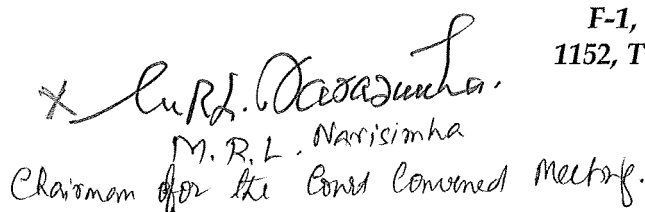 F-1,
1152, T
X M.R.L. Narasimha.
M. R. L. Narisimha
Chairman for the Court Convened Meeting.